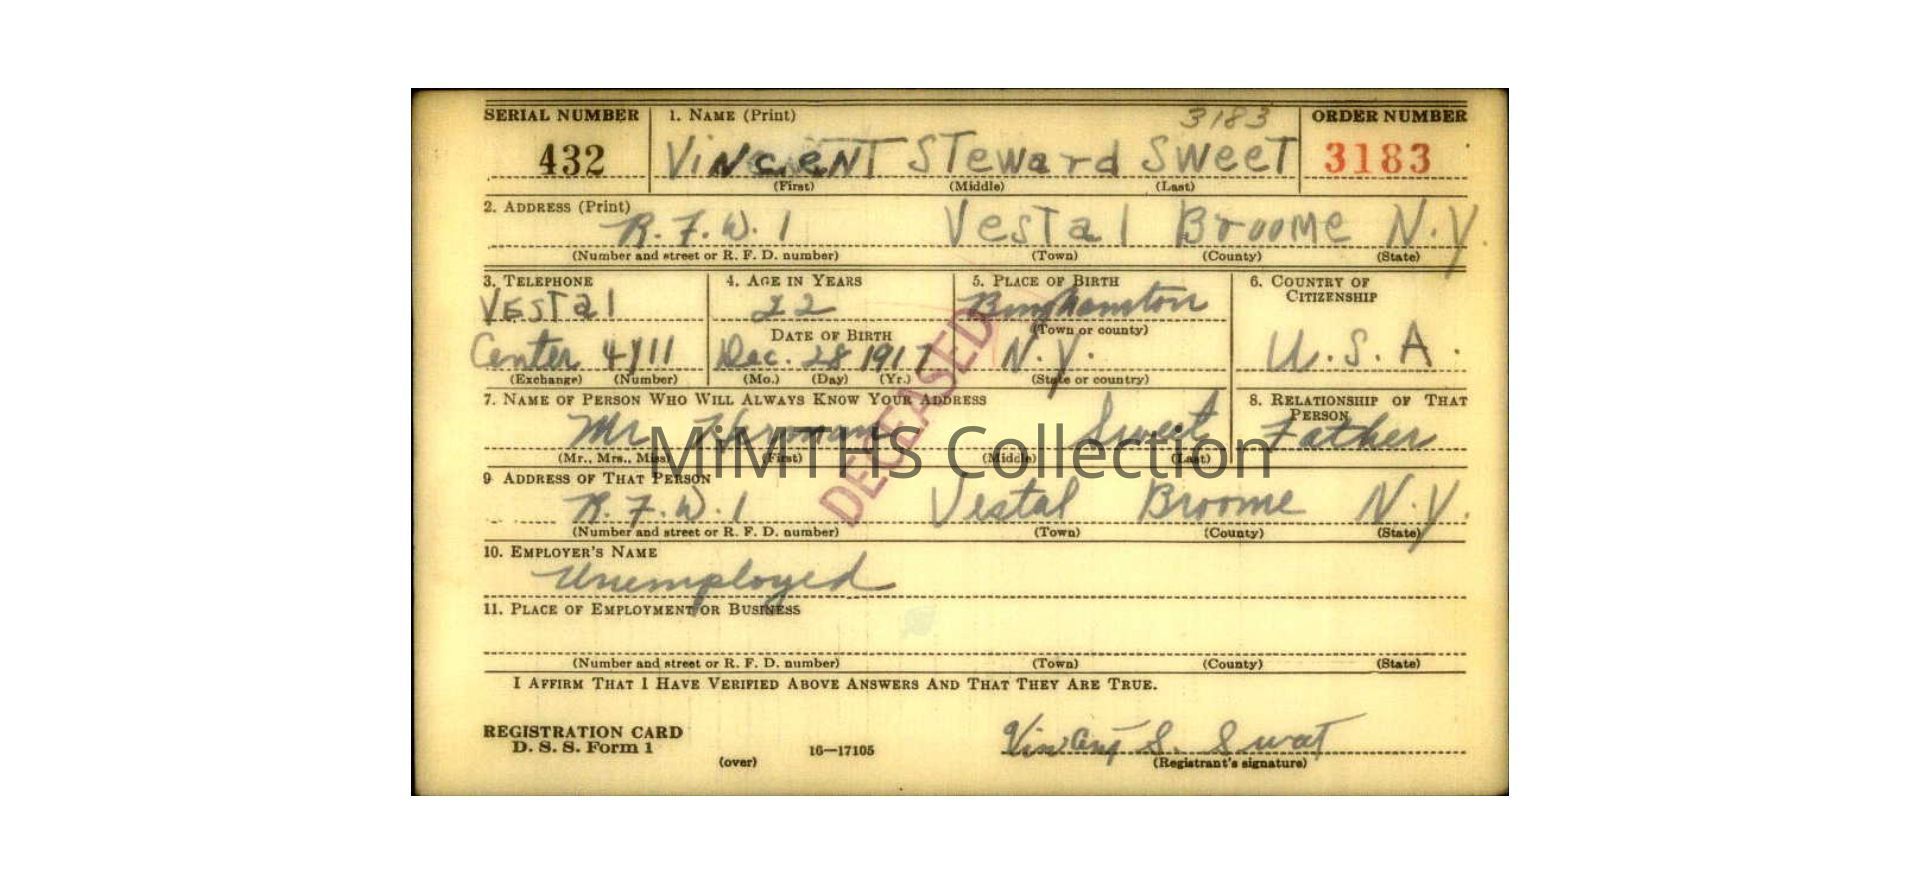 SERIAL NUMBER 1. NAME (Print) 3183 ORDER NUMBER
432 VINCENT STEWARD SWEET 3183
(First) (Middle) (Last)
2. ADDRESS (Print)
R. F. W. 1 Vestal Broome N.Y.
(Number and street or R. F. D. number) (Town) (County) (State)
3. TELEPHONE 4. AGE IN YEARS 5. PLACE OF BIRTH 6. COUNTRY OF CITIZENSHIP
VESTal 22 Binghamton
DATE OF BIRTH (Town or county)
Center 4111 Dec. 28 1917 N.Y. U.S.A.
(Exchange) (Number) (Mo.) (Day) (Yr.) (State or country)
DECEASED
7. NAME OF PERSON WHO WILL ALWAYS KNOW YOUR ADDRESS 8. RELATIONSHIP OF THAT PERSON
Mr Herman Sweet Father
MiMTHS Collection
(Mr., Mrs., Miss) (First) (Middle) (Last)
9 ADDRESS OF THAT PERSON
R. F. W. 1 Vestal Broome N.Y.
(Number and street or R. F. D. number) (Town) (County) (State)
10. EMPLOYER'S NAME
Unemployed
11. PLACE OF EMPLOYMENT OR BUSINESS
(Number and street or R. F. D. number) (Town) (County) (State)
I AFFIRM THAT I HAVE VERIFIED ABOVE ANSWERS AND THAT THEY ARE TRUE.
REGISTRATION CARD
D. S. S. Form 1 16—17105 Vincent S. Sweet
(over) (Registrant's signature)